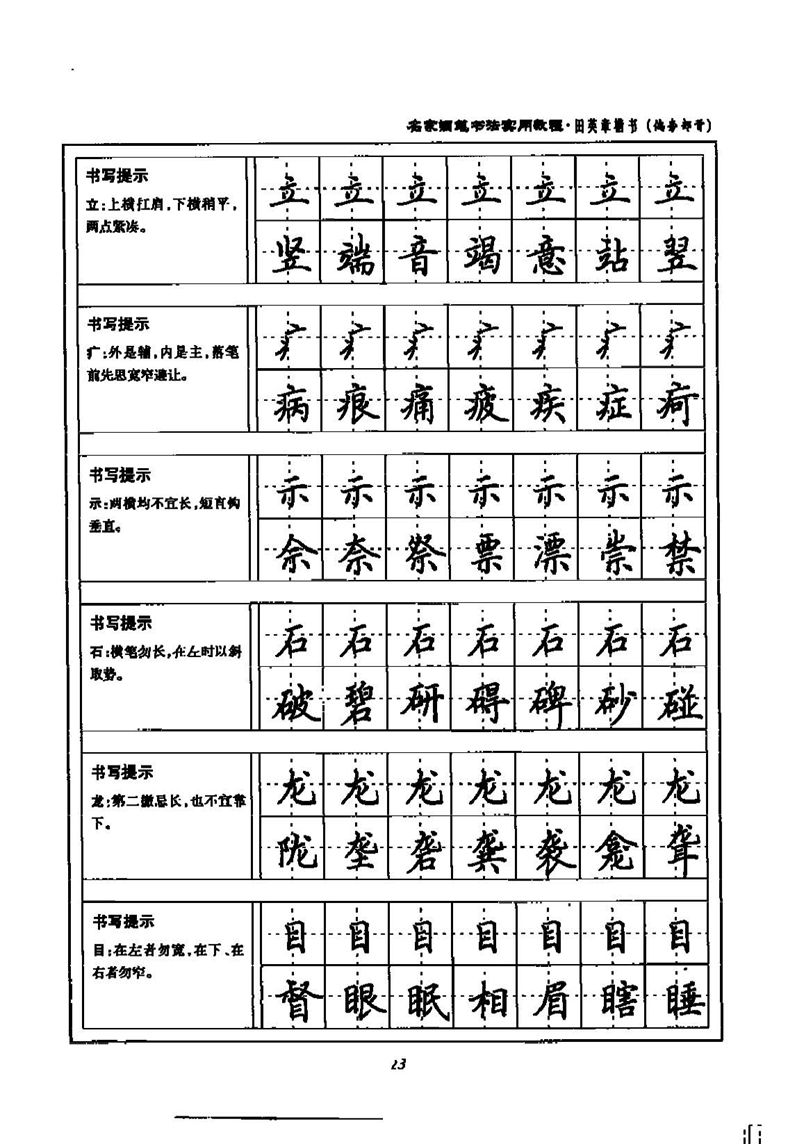 名家钢笔书法实用教程·田英章楷书(偏旁部首)
书写提示
立:上横扛肩,下横稍平,
两点紧凑。
立立立立立立立
竖端音竭意站翌
书写提示
疒:外是辅,内是主,落笔
前先思宽窄避让。
疒疒疒疒疒疒疒
病痕痛疲疾症疴
书写提示
示:两横均不宜长,短直钩
垂直。
示示示示示示示
佘奈祭票漂崇禁
书写提示
石:横笔勿长,在左时以斜
取势。
石石石石石石石
破碧研碍碑砂碰
书写提示
龙:第二撇忌长,也不宜靠
下。
龙龙龙龙龙龙龙
陇垄砻龚袭龛聋
书写提示
目:在左者勿宽,在下、在
右者勿窄。
目目目目目目目
督眼眠相眉瞎睡
23